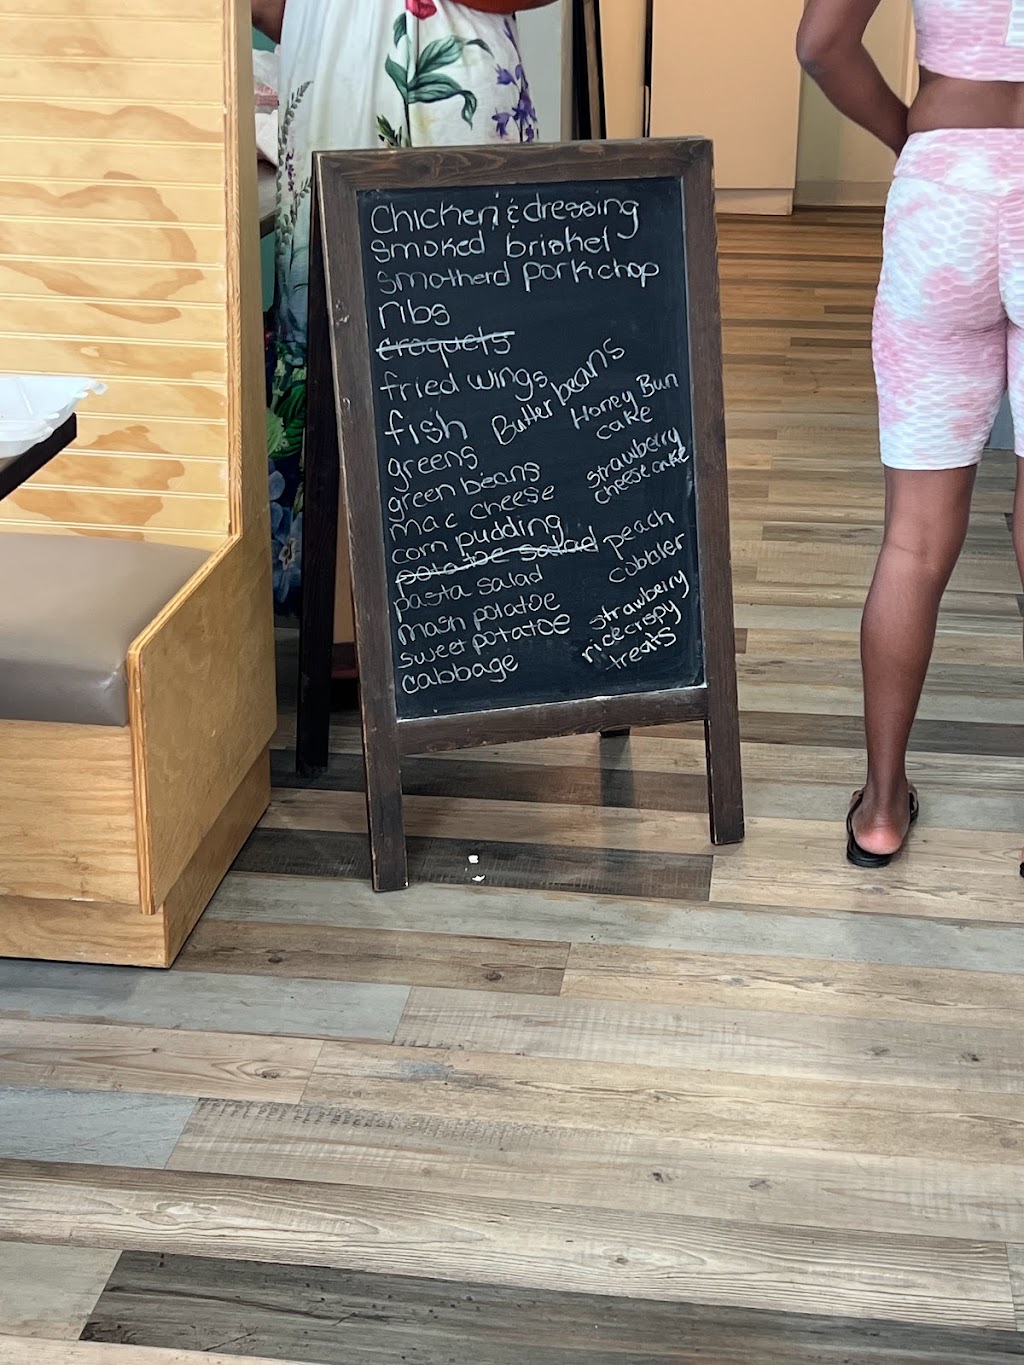 Chicken & dressing
smoked brisket
smotherd porkchop
ribs
croquets
fried wings
fish
greens
green beans
mac cheese
corn pudding
potatoe salad
pasta salad
mash potatoe
sweet potatoe
cabbage
Butter beans
Honey Bun
cake
strawberry
cheese cake
peach
cobbler
strawberry
rice crispy
treats